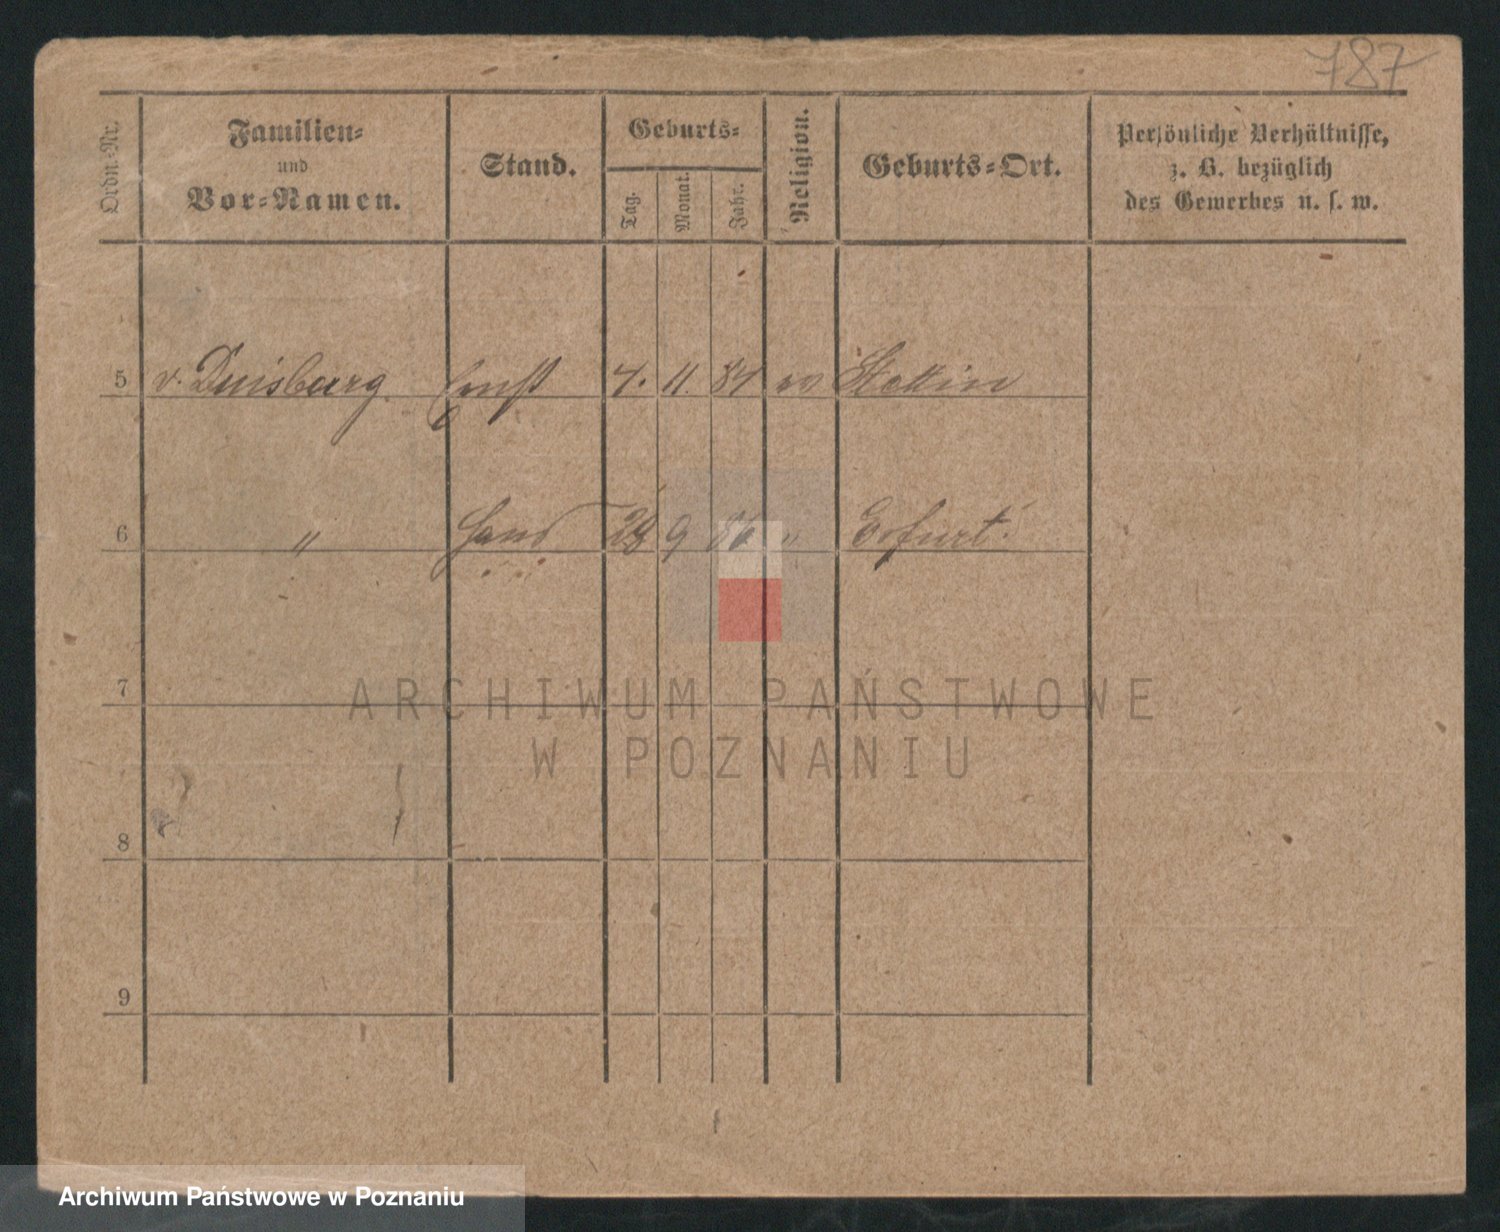 787
Ordn.-Nr.
Familien-
und
Vor-Namen.
Stand.
Geburts-
Tag.
Monat.
Jahr.
Religion.
Geburts-Ort.
Persönliche Verhältnisse,
z. B. bezüglich
des Gewerbes u. s. w.
5 v. Duisburg Ernst 7. 11. 84 ev Stettin
6 " Hans 28 9 86 " Erfurt.
7
8
9
ARCHIWUM PAŃSTWOWE
W POZNANIU
Archiwum Państwowe w Poznaniu